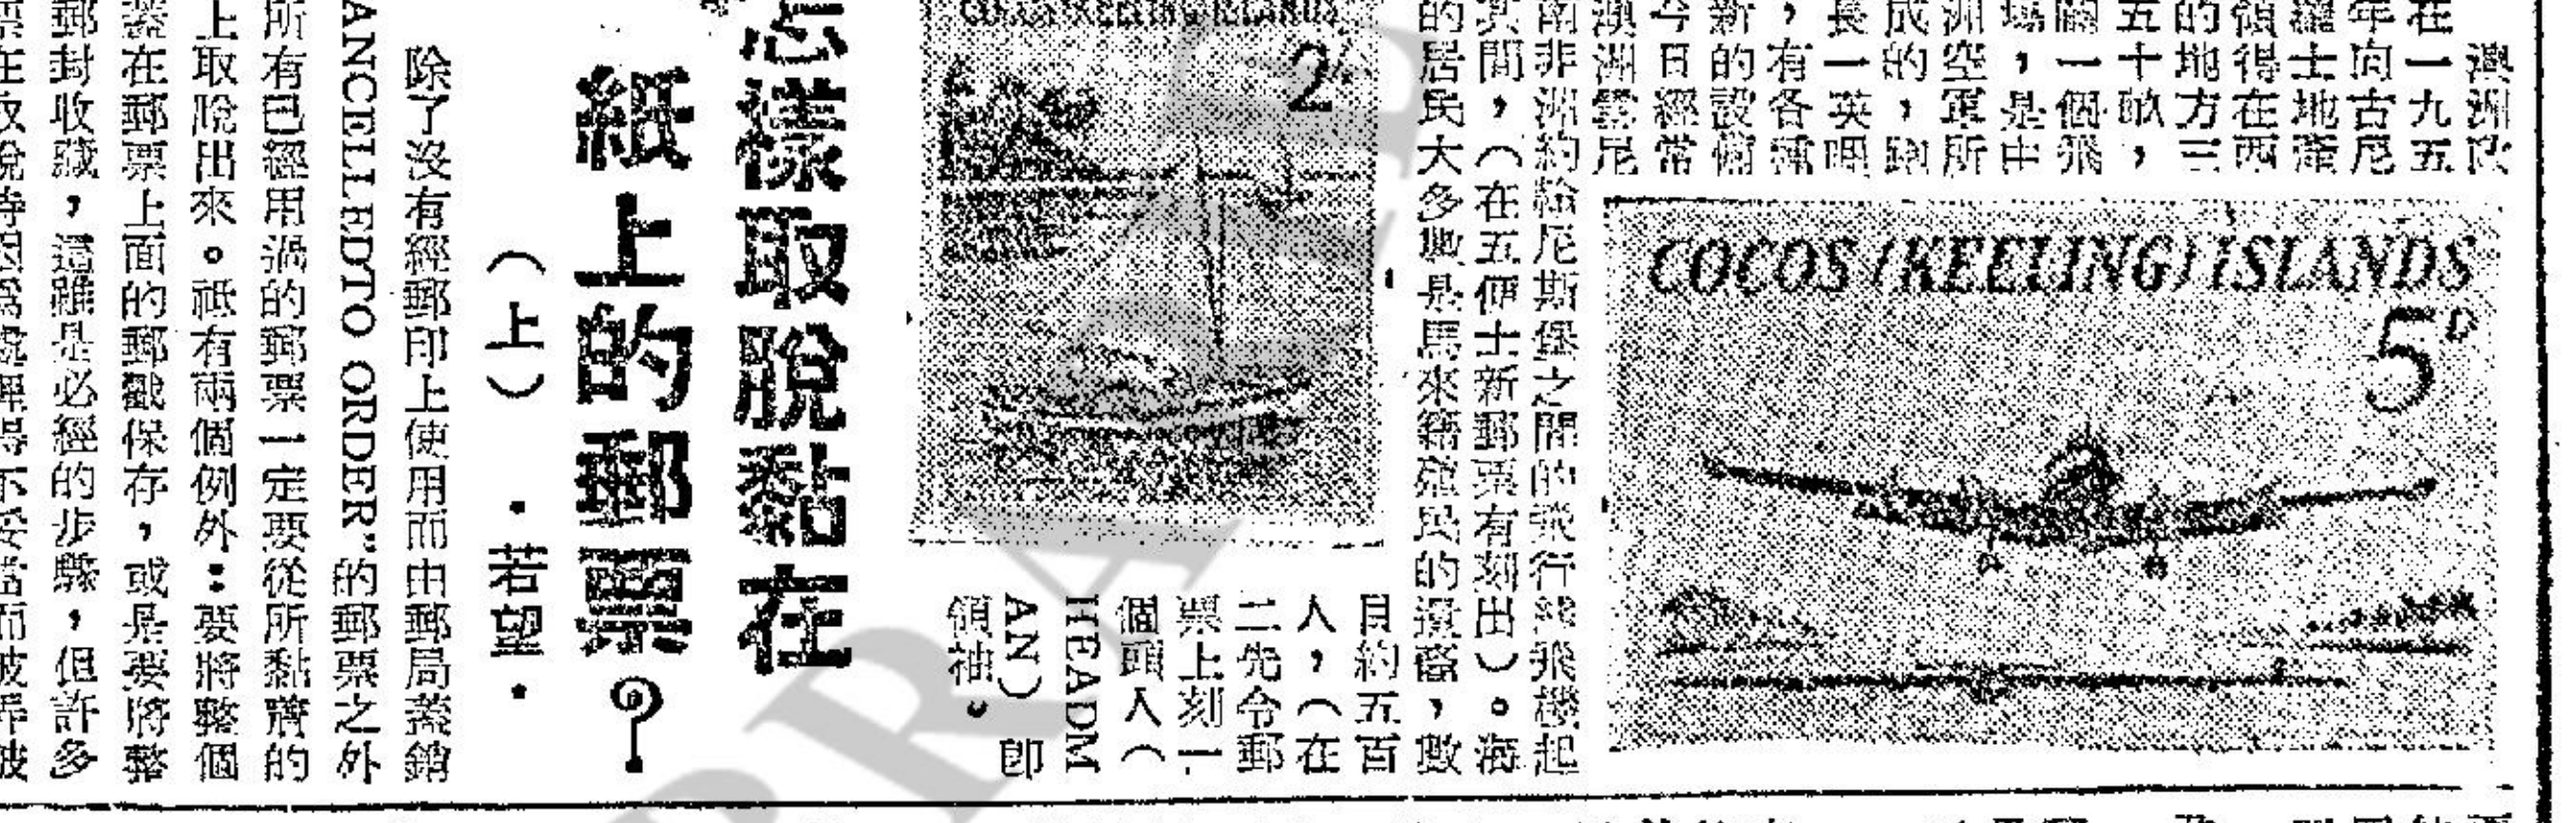 澳洲政
在一九五
年向古尼
羅士地產
領得在西
的地方三
五十畝，
闢一個飛
場，是由
洲空軍所
成的，跑
長一英哩
，有各種
新的設備
今日經常
澳洲雲尼
南非洲約翰尼斯堡之間的飛行線飛機起
其間，（在五便士新郵票有刻出）。海
的居民大多數是馬來籍殖民的遺裔，數
目約五百
人，（在
二先令郵
票上刻一
個頭人（
HEADM
AN）卽
領袖。
COCOS (KEELING) ISLANDS
5D
COCOS (KEELING) ISLANDS
2/
怎樣取脫黏在
紙上的郵票？
（上）
·若望·
除了沒有經郵印上使用而由郵局蓋銷
ANCELLEDTO ORDER"的郵票之外
所有已經用過的郵票一定要從所黏贋的
上取脫出來。祇有兩個例外：要將整個
蓋在郵票上面的郵戳保存，或是要將整
郵封收藏，這雖是必經的步驟，但許多